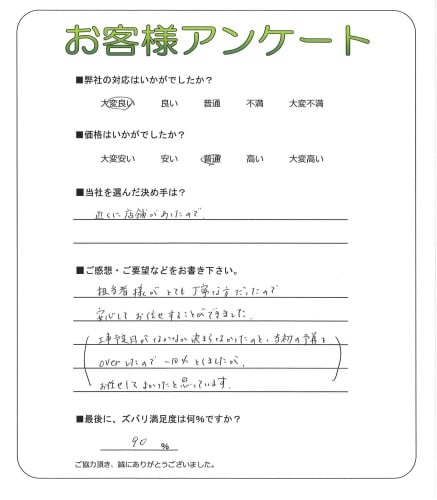 お客様アンケート
■弊社の対応はいかがでしたか？
大変良い 良い 普通 不満 大変不満
■価格はいかがでしたか？
大変安い 安い 普通 高い 大変高い
■当社を選んだ決め手は？
近くに店舗があったので。
■ご感想・ご要望などをお書き下さい。
担当者様がとても丁寧な方だったので
安心してお任せすることができました。
(工事予定日がなかなか決まらなかったのと、当初の予算を
overしたので −10%としましたが、
お任せしてよかったと思っています。)
■最後に、ズバリ満足度は何％ですか？
90 %
ご協力頂き、誠にありがとうございました。